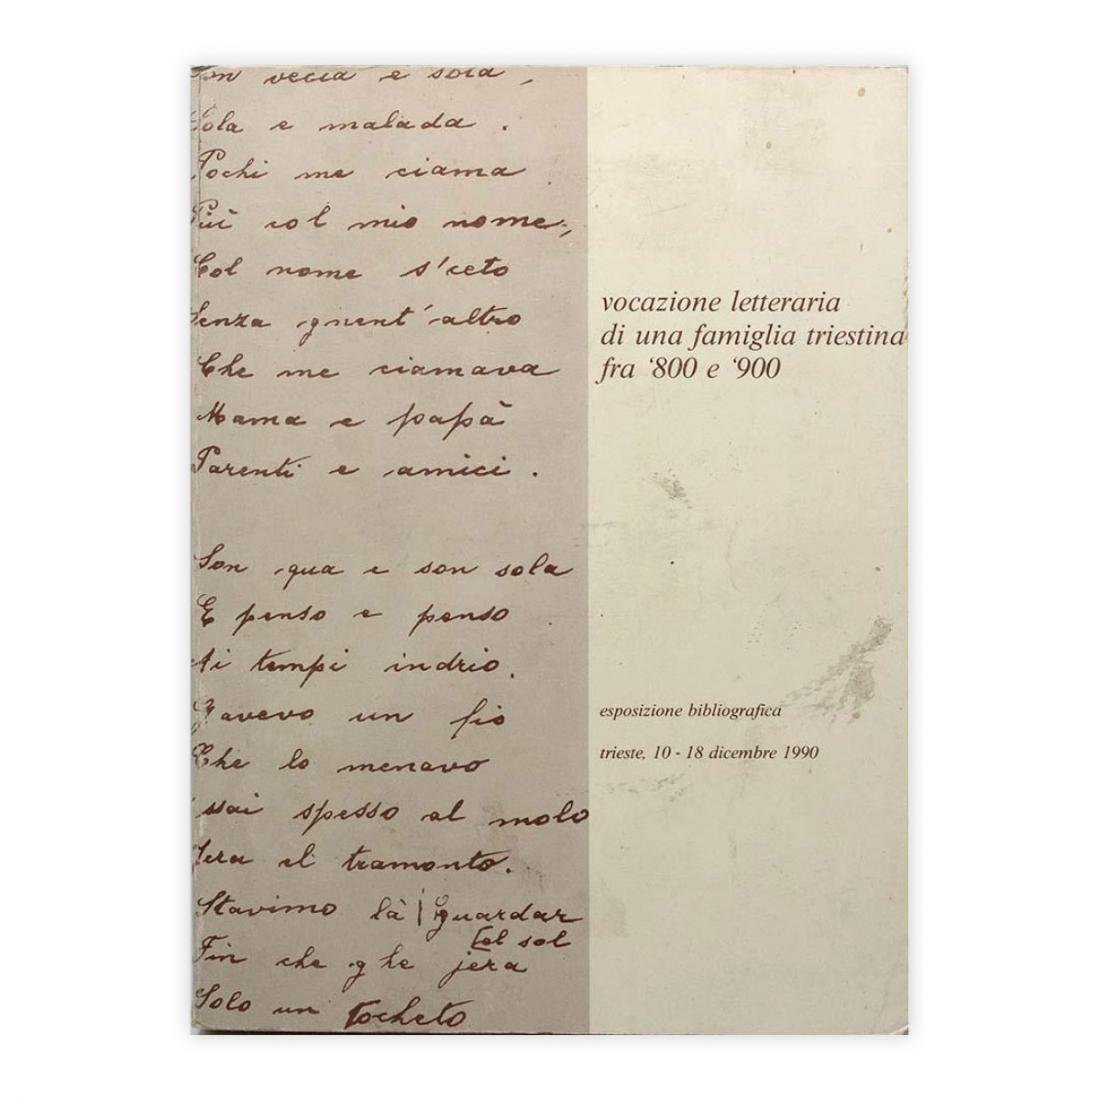 Son vecia e sola,
Sola e malada.
Pochi me ciama
Più col mio nome,
Col nome s'ceto
Senza gnent'altro
Che me ciamava
Mama e papà
Parenti e amici.
Son qua e son sola
E penso e penso
Ai tempi indrio.
Gavevo un fio
Che lo menavo
'ssai spesso al molo
Jera el tramonto.
Stavimo là guardar
el sol
Fin che ghe jera
Solo un tocheto
vocazione letteraria
di una famiglia triestina
fra ‘800 e ‘900
esposizione bibliografica
trieste, 10 - 18 dicembre 1990